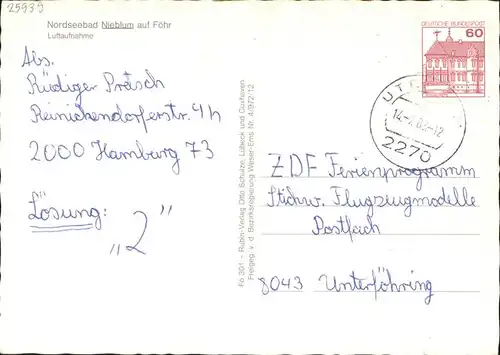 25939
Nordseebad Nieblum auf Föhr
Luftaufnahme
Abs.
Rüdiger Prätsch
Reinickendorferstr. 4h
2000 Hamburg 73
Lösung:
„2"
Fö 30/1 - Rubin-Verlag Otto Schulze, Lübeck und Cuxhaven
Freigeg. v. d. Bezirksregierung Weser-Ems Nr. 4/972-12
DEUTSCHE BUNDESPOST
60
2270
ZDF Ferienprogramm
Stichw. Flugzeugmodelle
Postfach
8043 Unterföhring